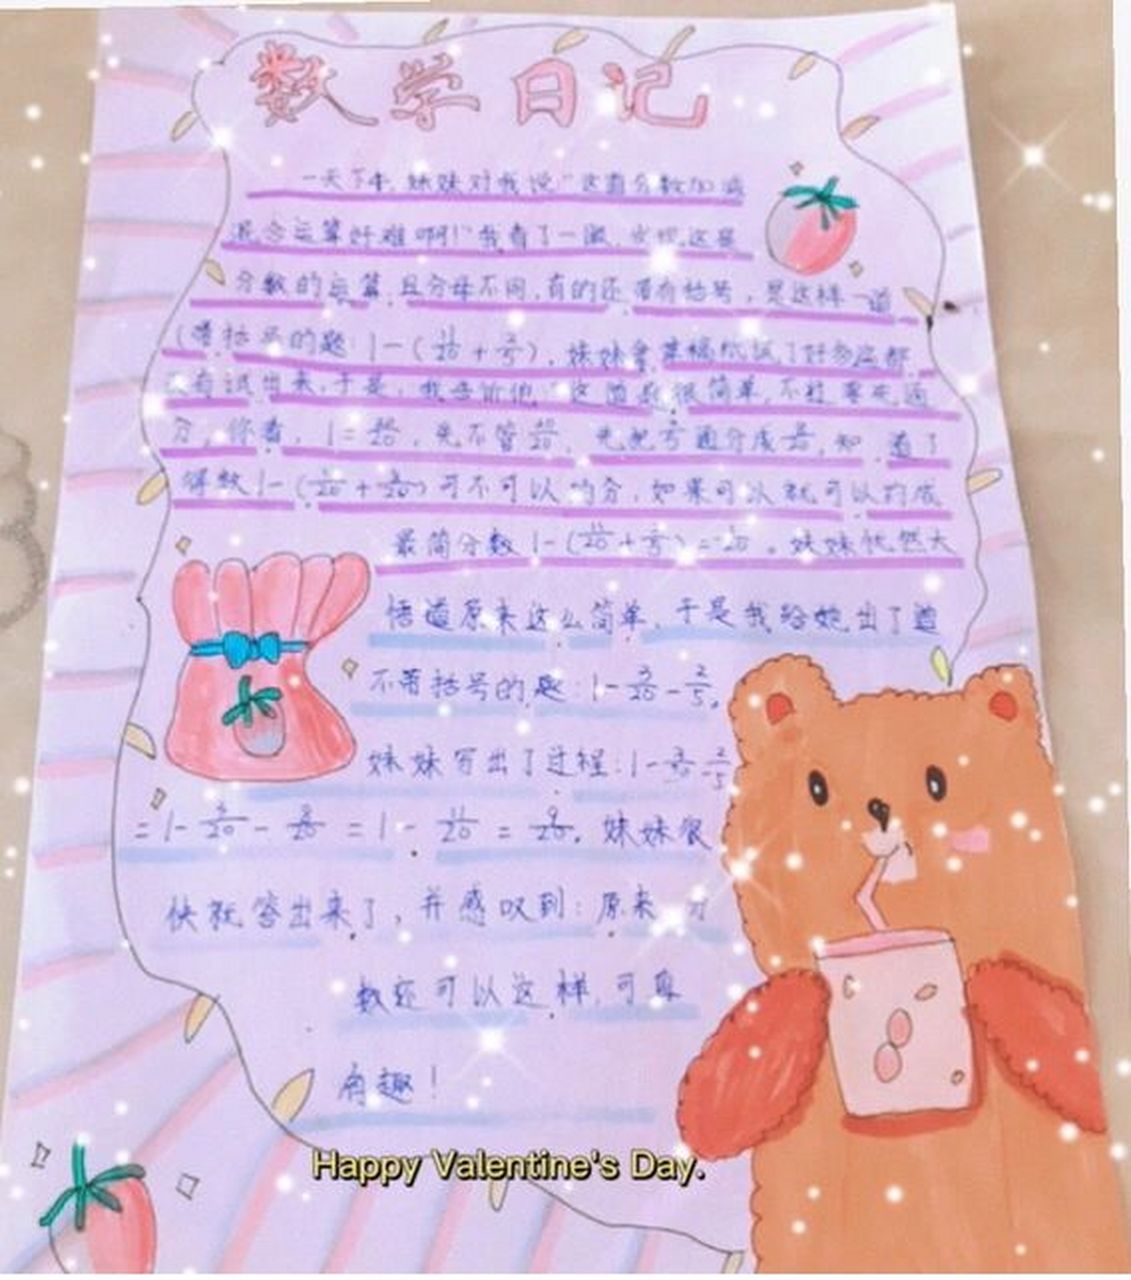 数学日记
一天下午,妹妹对我说"这道分数加减
混合运算好难啊!"我看了一眼,发现这是
分数的运算,且分母不同,有的还带有括号,是这样一道
(带括号的题:1-( + ),妹妹拿草稿纸试了好多遍都
没有试出来,于是,我告诉他"这道题很简单,不过要先通
分,你看,1= ,先不管 ,先把 通分成 ,知道了
得数1-( + )可不可以约分,如果可以就可以约成
最简分数1-( + )= 。妹妹恍然大
悟道原来这么简单,于是我给她出了道
不带括号的题:1-3/20-2/5,
妹妹写出了过程:1-3/20-2/5
=1-3/20-8/20=1-11/20=9/20,妹妹很
快就答出来了,并感叹到:原来分
数还可以这样,可真
有趣!
Happy Valentine's Day.